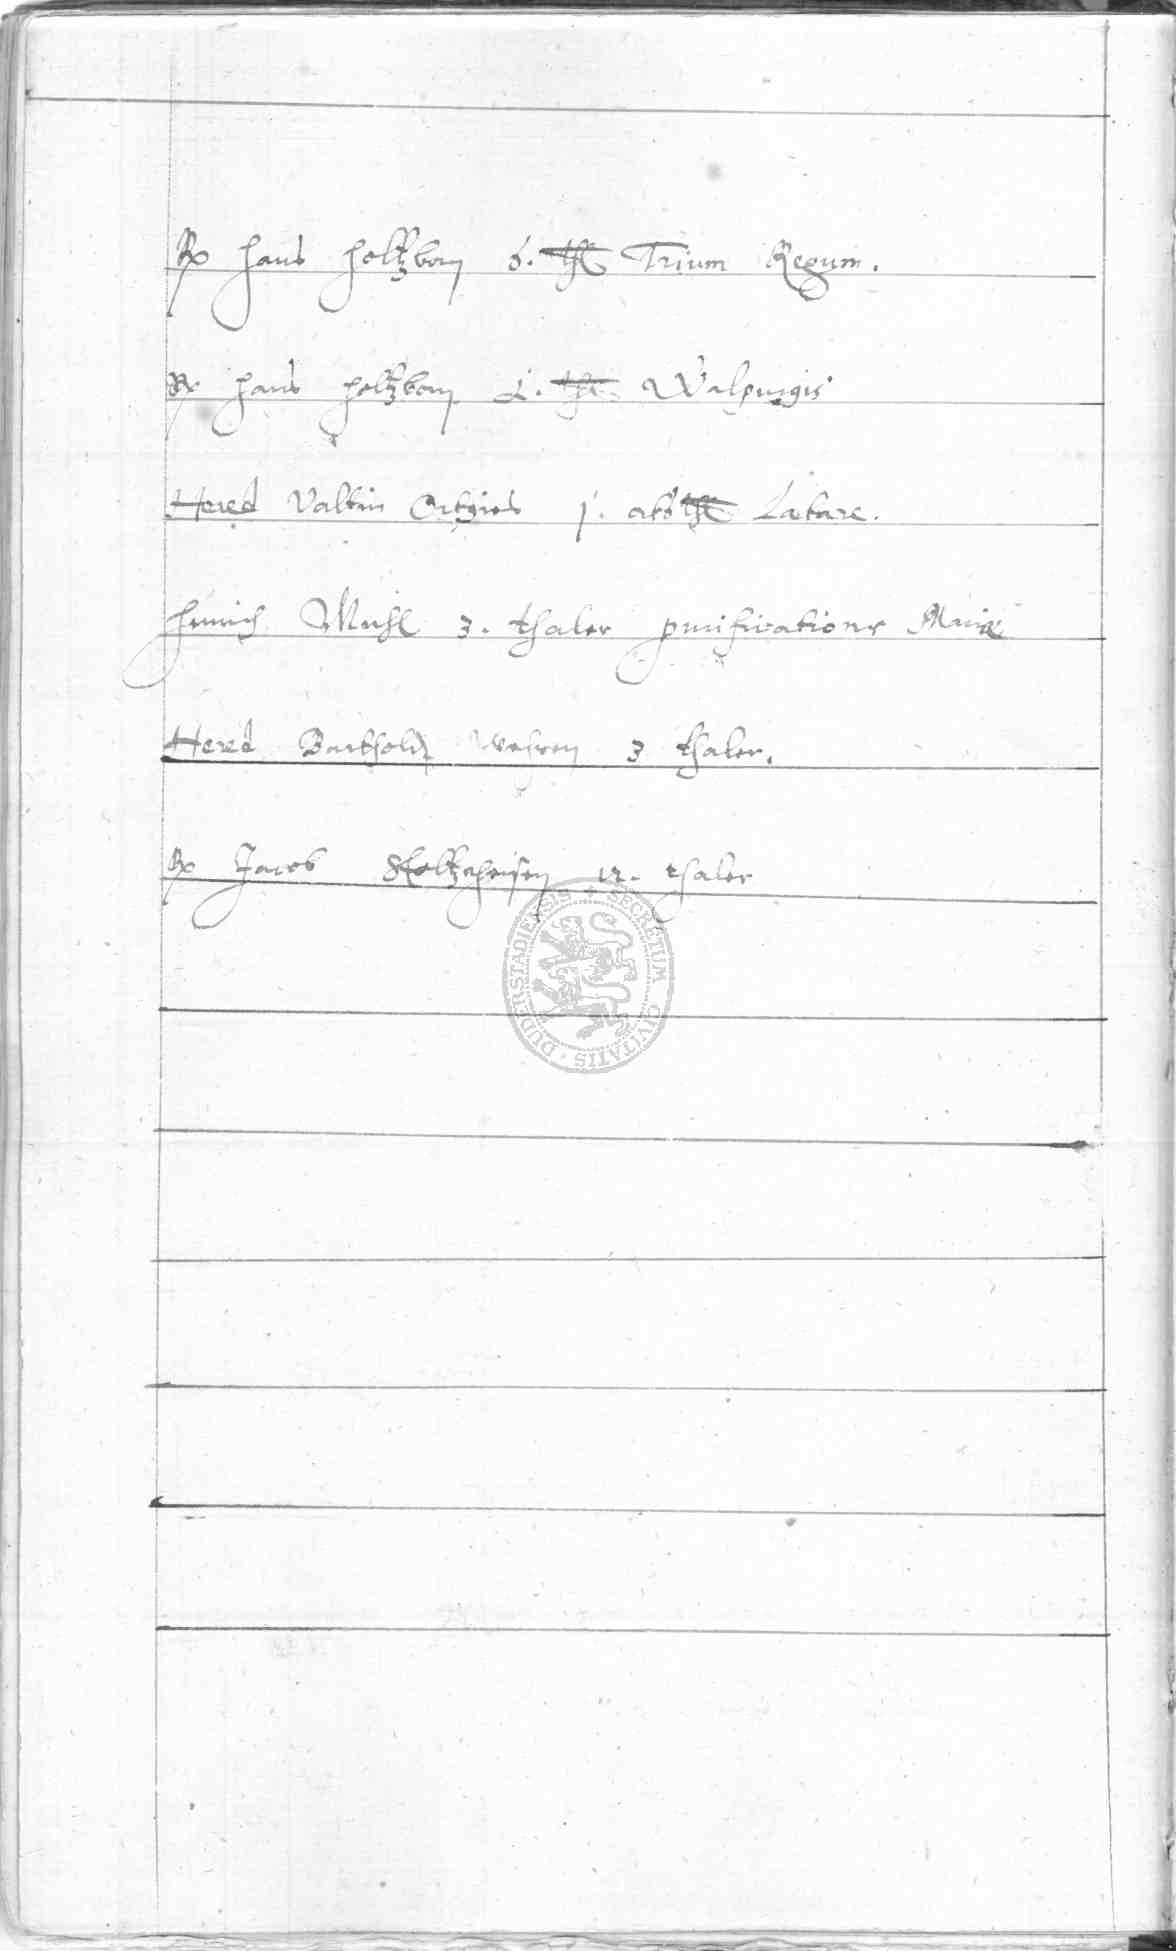 Rp Hans Holtzborn 6. thl Trium Regum.
Rp Hans Holtzborn 2. thl Walpurgis
Hered Valtin Ortgies 1. thl Lætare.
Henrich Muhl 3. thaler purificationis Mariæ
Hered Barthold Wehren 3 thaler.
Rp Jacob 12. thaler
SECRETUM CIVITATIS DUDERSTADIENSIS